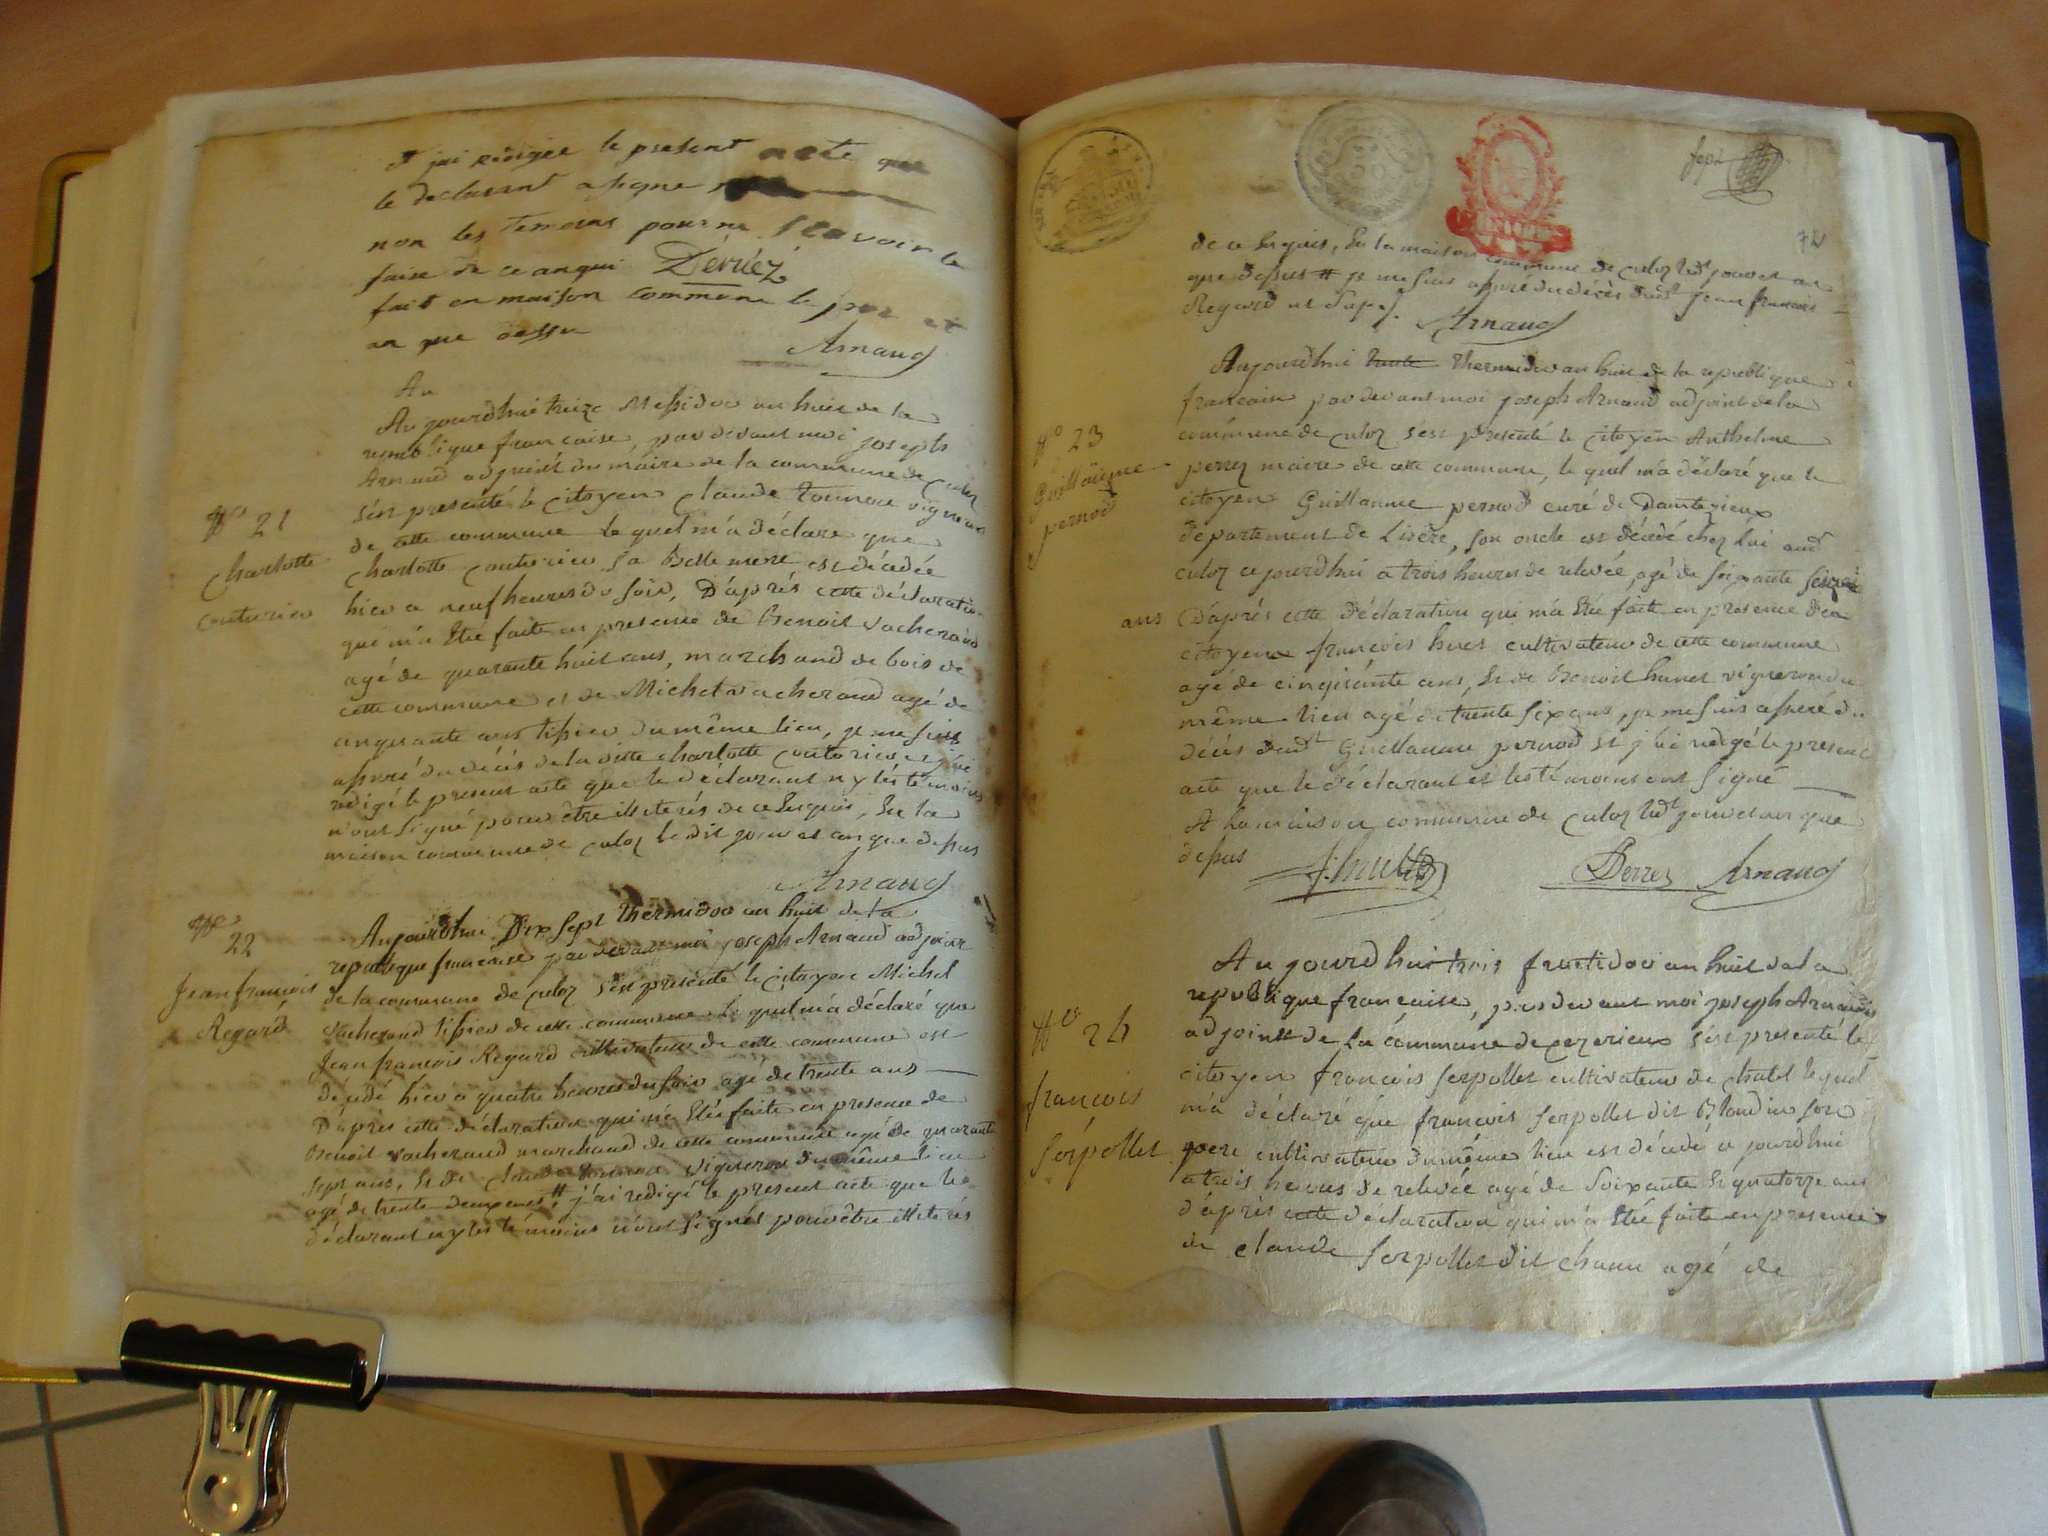 et jai redigee le present acte que
le declarant a signe
non les temoins pour ne scavoir le
faire de ce anqui Derriez
fait en maison commune le jour et
an que dessu
Arnaud
Au
Aujourdhui treize Messidor an huit de la
republique francaise, pardevant moi joseph
Arnaud adjoint du maire de la commune de culoz
s'est presenté le citoyen claude tournoux vigneron
de cette commune le quel m'a déclare que
charlotte couturier sa Belle mere est décédée
hier a neuf heures du soir, D'aprés cette déclaration
qui m'a étée faite en presence de Benoit vacheraud
agé de quarante huit ans, marchand de bois de
cette commune et de Michel vacheraud agé de
cinquante ans tissier du même lieu, je me suis
assuré du décés de la ditte charlotte couturier et j'ai
redigé le present acte que le déclarant ny les témoins
n'ont signé pour être illiterés de ce Enquis, En la
maison commune de culoz le dit jour et an que dessus
Arnaud
N.o 21
charlotte
couturier
N.o
22
Jean francois
Regard
Aujourdhui Dix sept thermidor an huit de la
republique francaise pardevant moi joseph Arnaud adjoint
de la commune de culoz s'est presenté le citoyen Michel
vacheraud tissier de cette commune le quel m'a déclaré que
Jean francois Regard cultivateur de cette commune est
décédé hier a quatre heures du soir agé de trente ans
D'après cette déclaration qui m'a étée faite en presence de
Benoit vacheraud marchand de cette commune agé de quarante
sept ans, Et de claude vigneron du même lieu
agé de trente deux ans # j'ai redigé le present acte que le
déclarant ny les témoins n'ont signés pour être illiterés
sept
72
de ce Enquis, En la maison commune de culoz led.t jour et an
que dessus # je me suis assuré du décès dud.t jean francois
Regard
Arnaud
N.o 23
Guillaume
pernod
Aujourdhui trente thermidor an huit de la republique
francaise pardevant moi joseph Arnaud adjoint de la
commune de culoz s'est presenté le citoyen Anthelme
perrez maire de cette commune, le quel m'a déclaré que le
citoyen Guillaume pernod curé de Dantezieux
département de Lisère, son oncle est décédé chez lui aud.
culoz cejourdhui a trois heures de relevée, agé de soixante seize
ans D'aprés cette déclaration qui m'a étée faite en presence des
citoyens françois huet cultivateur de cette commune
agé de cinquante ans, Et de Benoit hunet vigneron du
même lieu agé de trente six ans, je me suis assuré du
décés dud.t Guillaume pernod et j'ai redigé le present
acte que le déclarant et les témoins ont signé
A la maison commune de culoz led.t jour et an que
dessus J. huet Derrez Arnaud
N.o 24
francois
serpollet
Aujourdhui trois fructidor an huit de la
republique francaise, pardevant moi joseph Arnaud
adjoint de la commune de cezerieux s'est presenté le
citoyen françois serpollet cultivateur de chatel le quel
m'a déclaré que francois serpollet dit Blondin son
pere cultivateur du même lieu est décédé ce jourdhui
a trois heures de relevée agé de soixante Et quatorze ans
d'aprés cette déclaration qui m'a étée faite en presence
de claude serpollet dit agé de